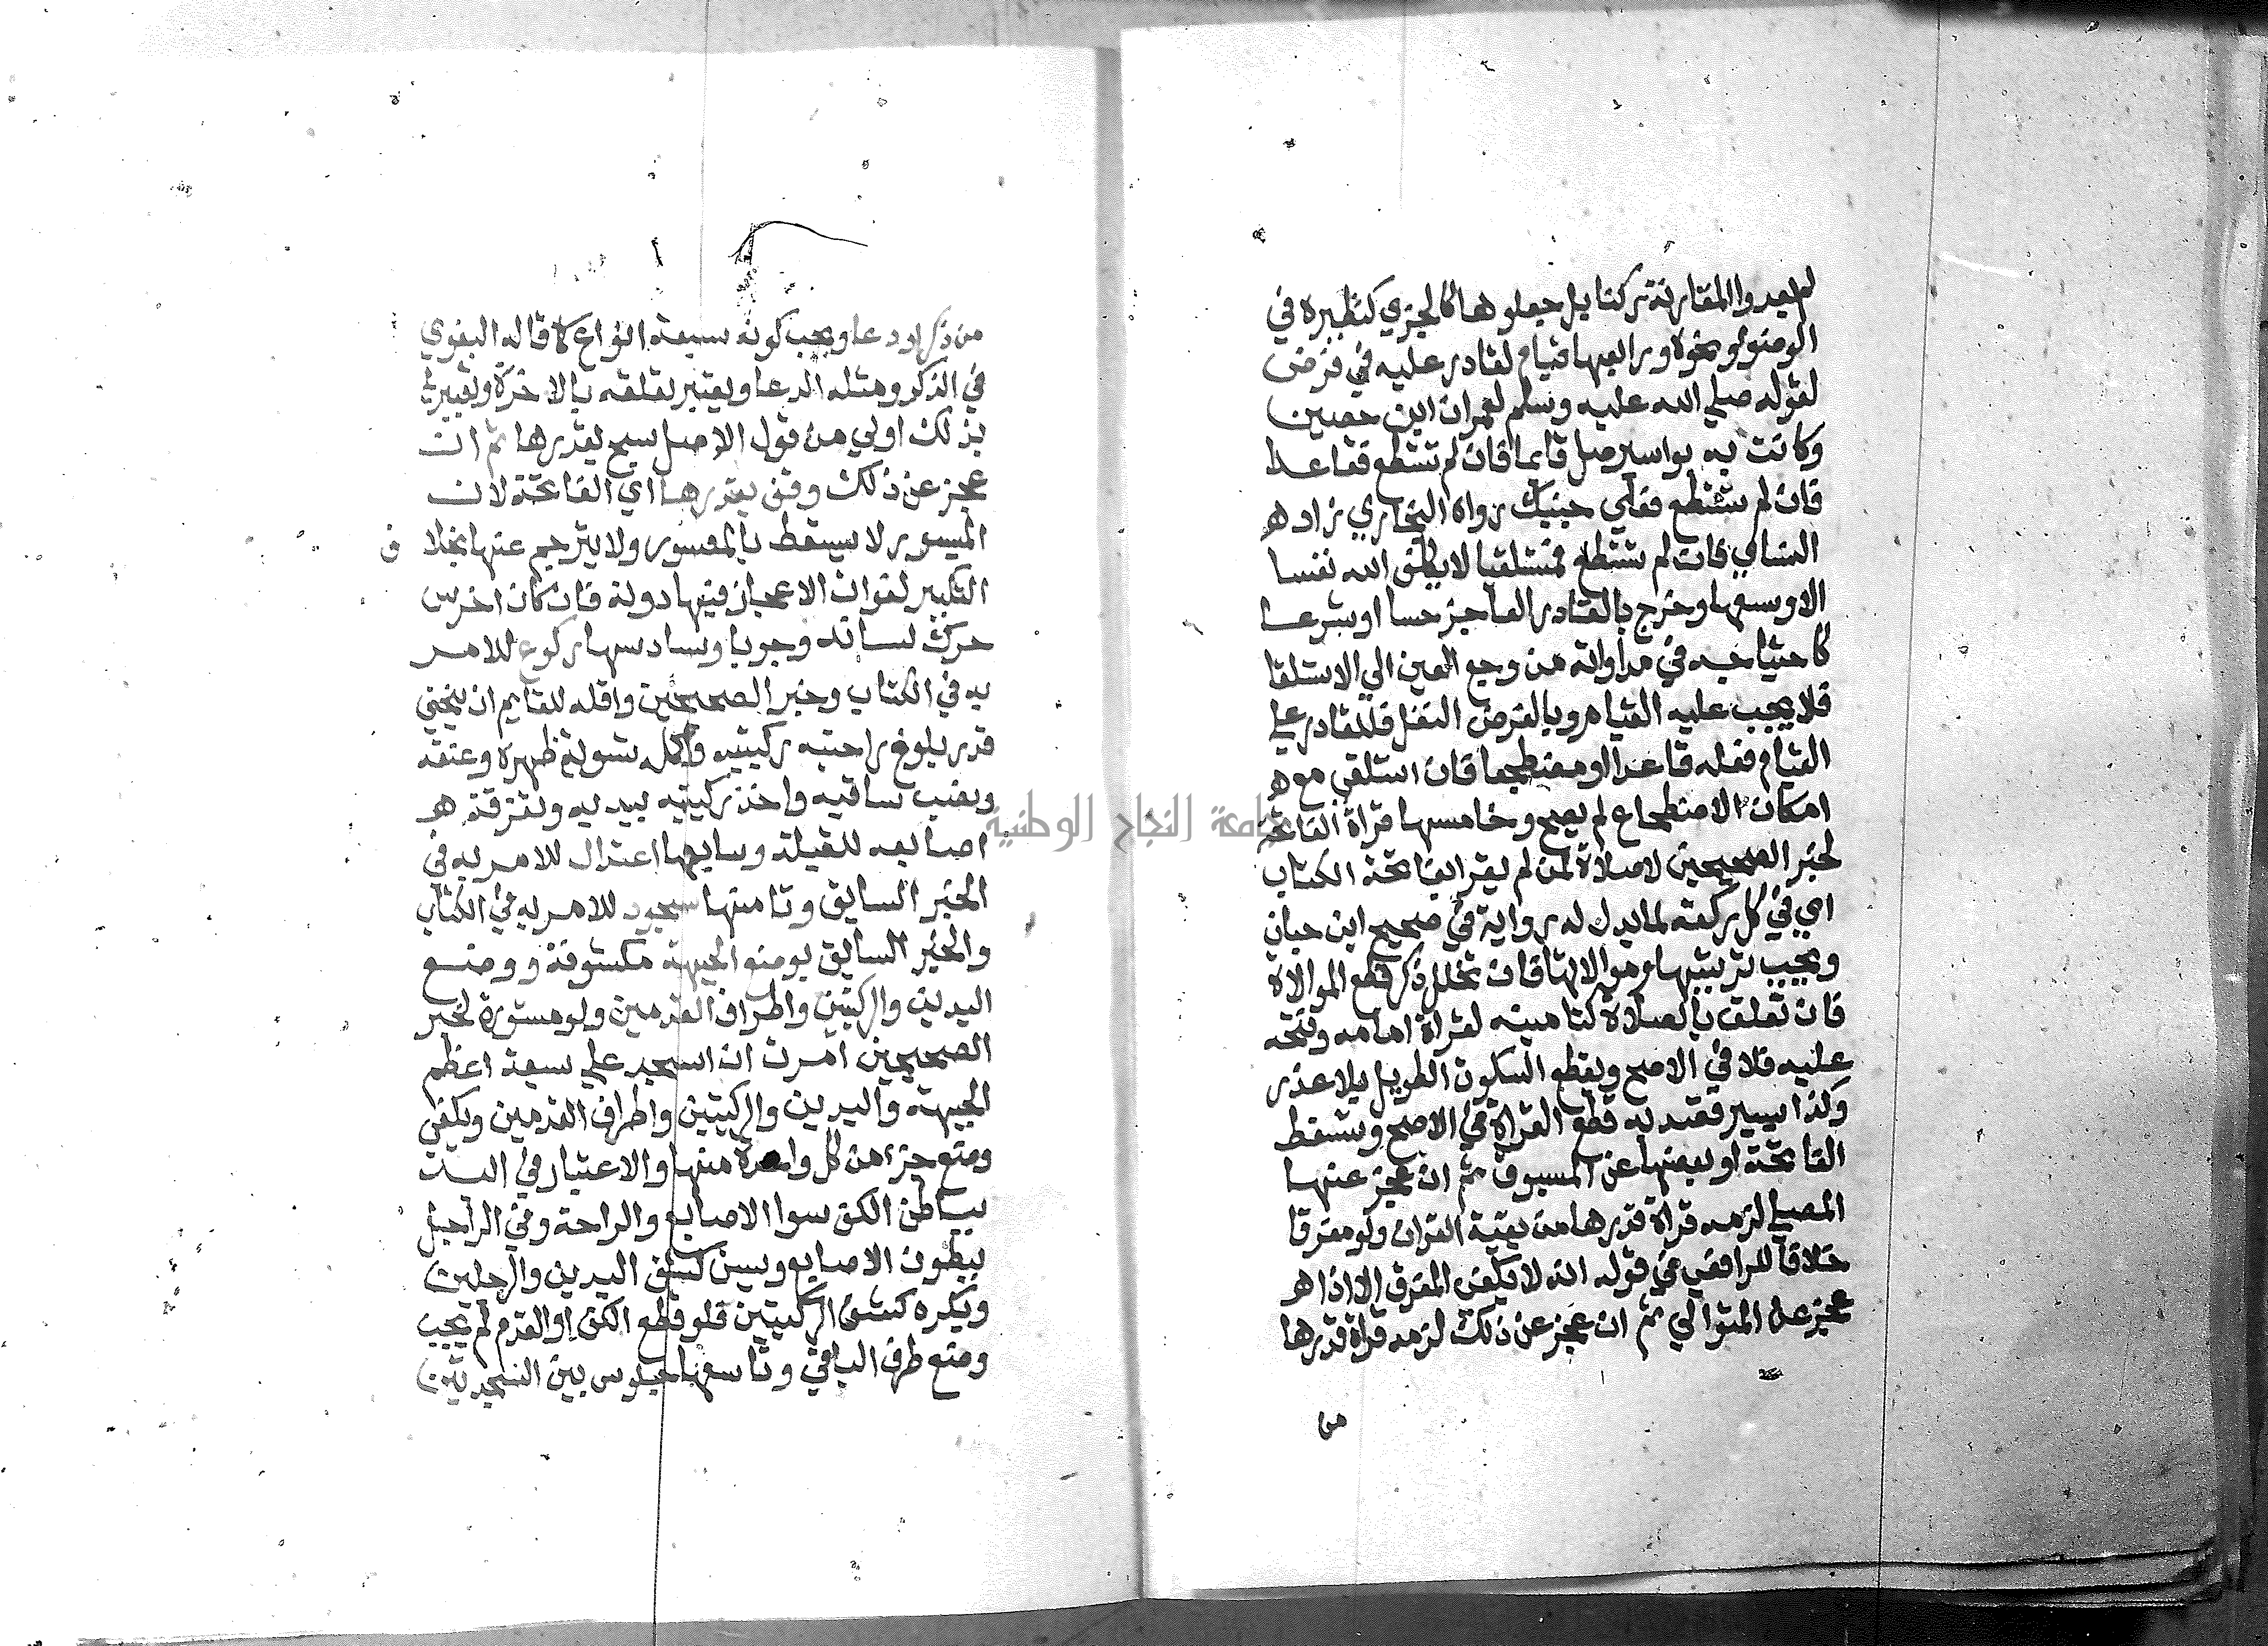 لم يعدوا المقارنة ركنا بل جعلوها كالجزي كنظيره في
الوضوء ونحوه ورابعها قيام لقادر عليه في فرض
لقوله صلي الله عليه وسلم لعمران ابن حصين
وكانت به بواسير صل قايما فان لم تستطع فقاعدا
فان لم تستطع فعلي جنبك رواه البخاري زاد ه
النساي فان لم تستطع فمستلقيا لا يكلف الله نفسا
الا وسعها وخرج بالقادر العاجز حسا او شرعا
كاحتياجه في مداواته من وجع العين الي الاستلقا
فلا يجب عليه القيام وبالفرض النفل فللقادر علي
القيام فعله قاعدا او مضطجعا فان استلقي مع ه
امكان الاضطجاع لم يصح وخامسها قراة الفاتحة
لخبر الصحيحين لا صلاة لمن لم يقرا بفاتحة الكتاب
اي في كل ركعة لما يدل له رواية في صحيح ابن حبان
ويجب ترتيبها وموالاتها فان تخلل ذكر قطع الموالاة
فان تعلق بالصلاة كتامينه لقراة امامه وفتحه
عليه فلا في الاصح ويقطع السكوت الطويل بلا عذر
وكذا يسير قصد به قطع القراة في الاصح وتسقط
الفاتحة او بعضها عن المسبوق ثم ان عجز عنها
المصلي لزمه قراة قدرها من بقية القران ولو مفرقا
خلافا للرافعي في قوله انه لا يكفي المفرق الا اذا ه
عجز عن المتوالي ثم ان عجز عن ذلك لزمه قراة قدرها
من
من ذكر او دعا ويجب كونه سبعة انواع كما قاله البغوي
في الذكر ومثله الدعا ويعتبر تعلقه بالاخرة وتعبيري
بذلك اولي من قول الاصل سبح بقدرها ثم ان
عجز عن ذلك وقف بقدرها اي الفاتحة لان
الميسور لا يسقط بالمعسور ولا يترجم عنها بخلاف
التكبير لفوات الاعجاز فيها دونه فان كان اخرس
حرك لسانه وجوبا وسادسها ركوع للامر
به في الكتاب وخبر الصحيحين واقله للقايم ان ينحني
قدر بلوغ راحتيه ركبتيه واكمله تسوية ظهره وعنقه
ونصب ساقيه واخذ ركبتيه بيديه وتفرقة ه
اصابعه للقبلة وسابعها اعتدال للامر به في
الخبر السابق وثامنها سجود للامر به في الكتاب
والخبر السابق بوضع الجبهة مكشوفة ووضع
اليدين والركبتين واطراف القدمين ولو مستورة لخبر
الصحيحين امرت ان اسجد علي سبعة اعظم
الجبهة واليدين والركبتين واطراف القدمين ويكفي
وضع جزء من كل واحدة منها والاعتبار في الست
بباطن الكف سوا الاصابع والراحة وفي الرجل
ببطون الاصابع ويسن كشف اليدين والرجلين
ويكره كشف الركبتين فلو قطع الكف او القدم لم يجب
وضع طرف الباقي وتاسعها جلوس بين السجدتين
جامعة النجاح الوطنية